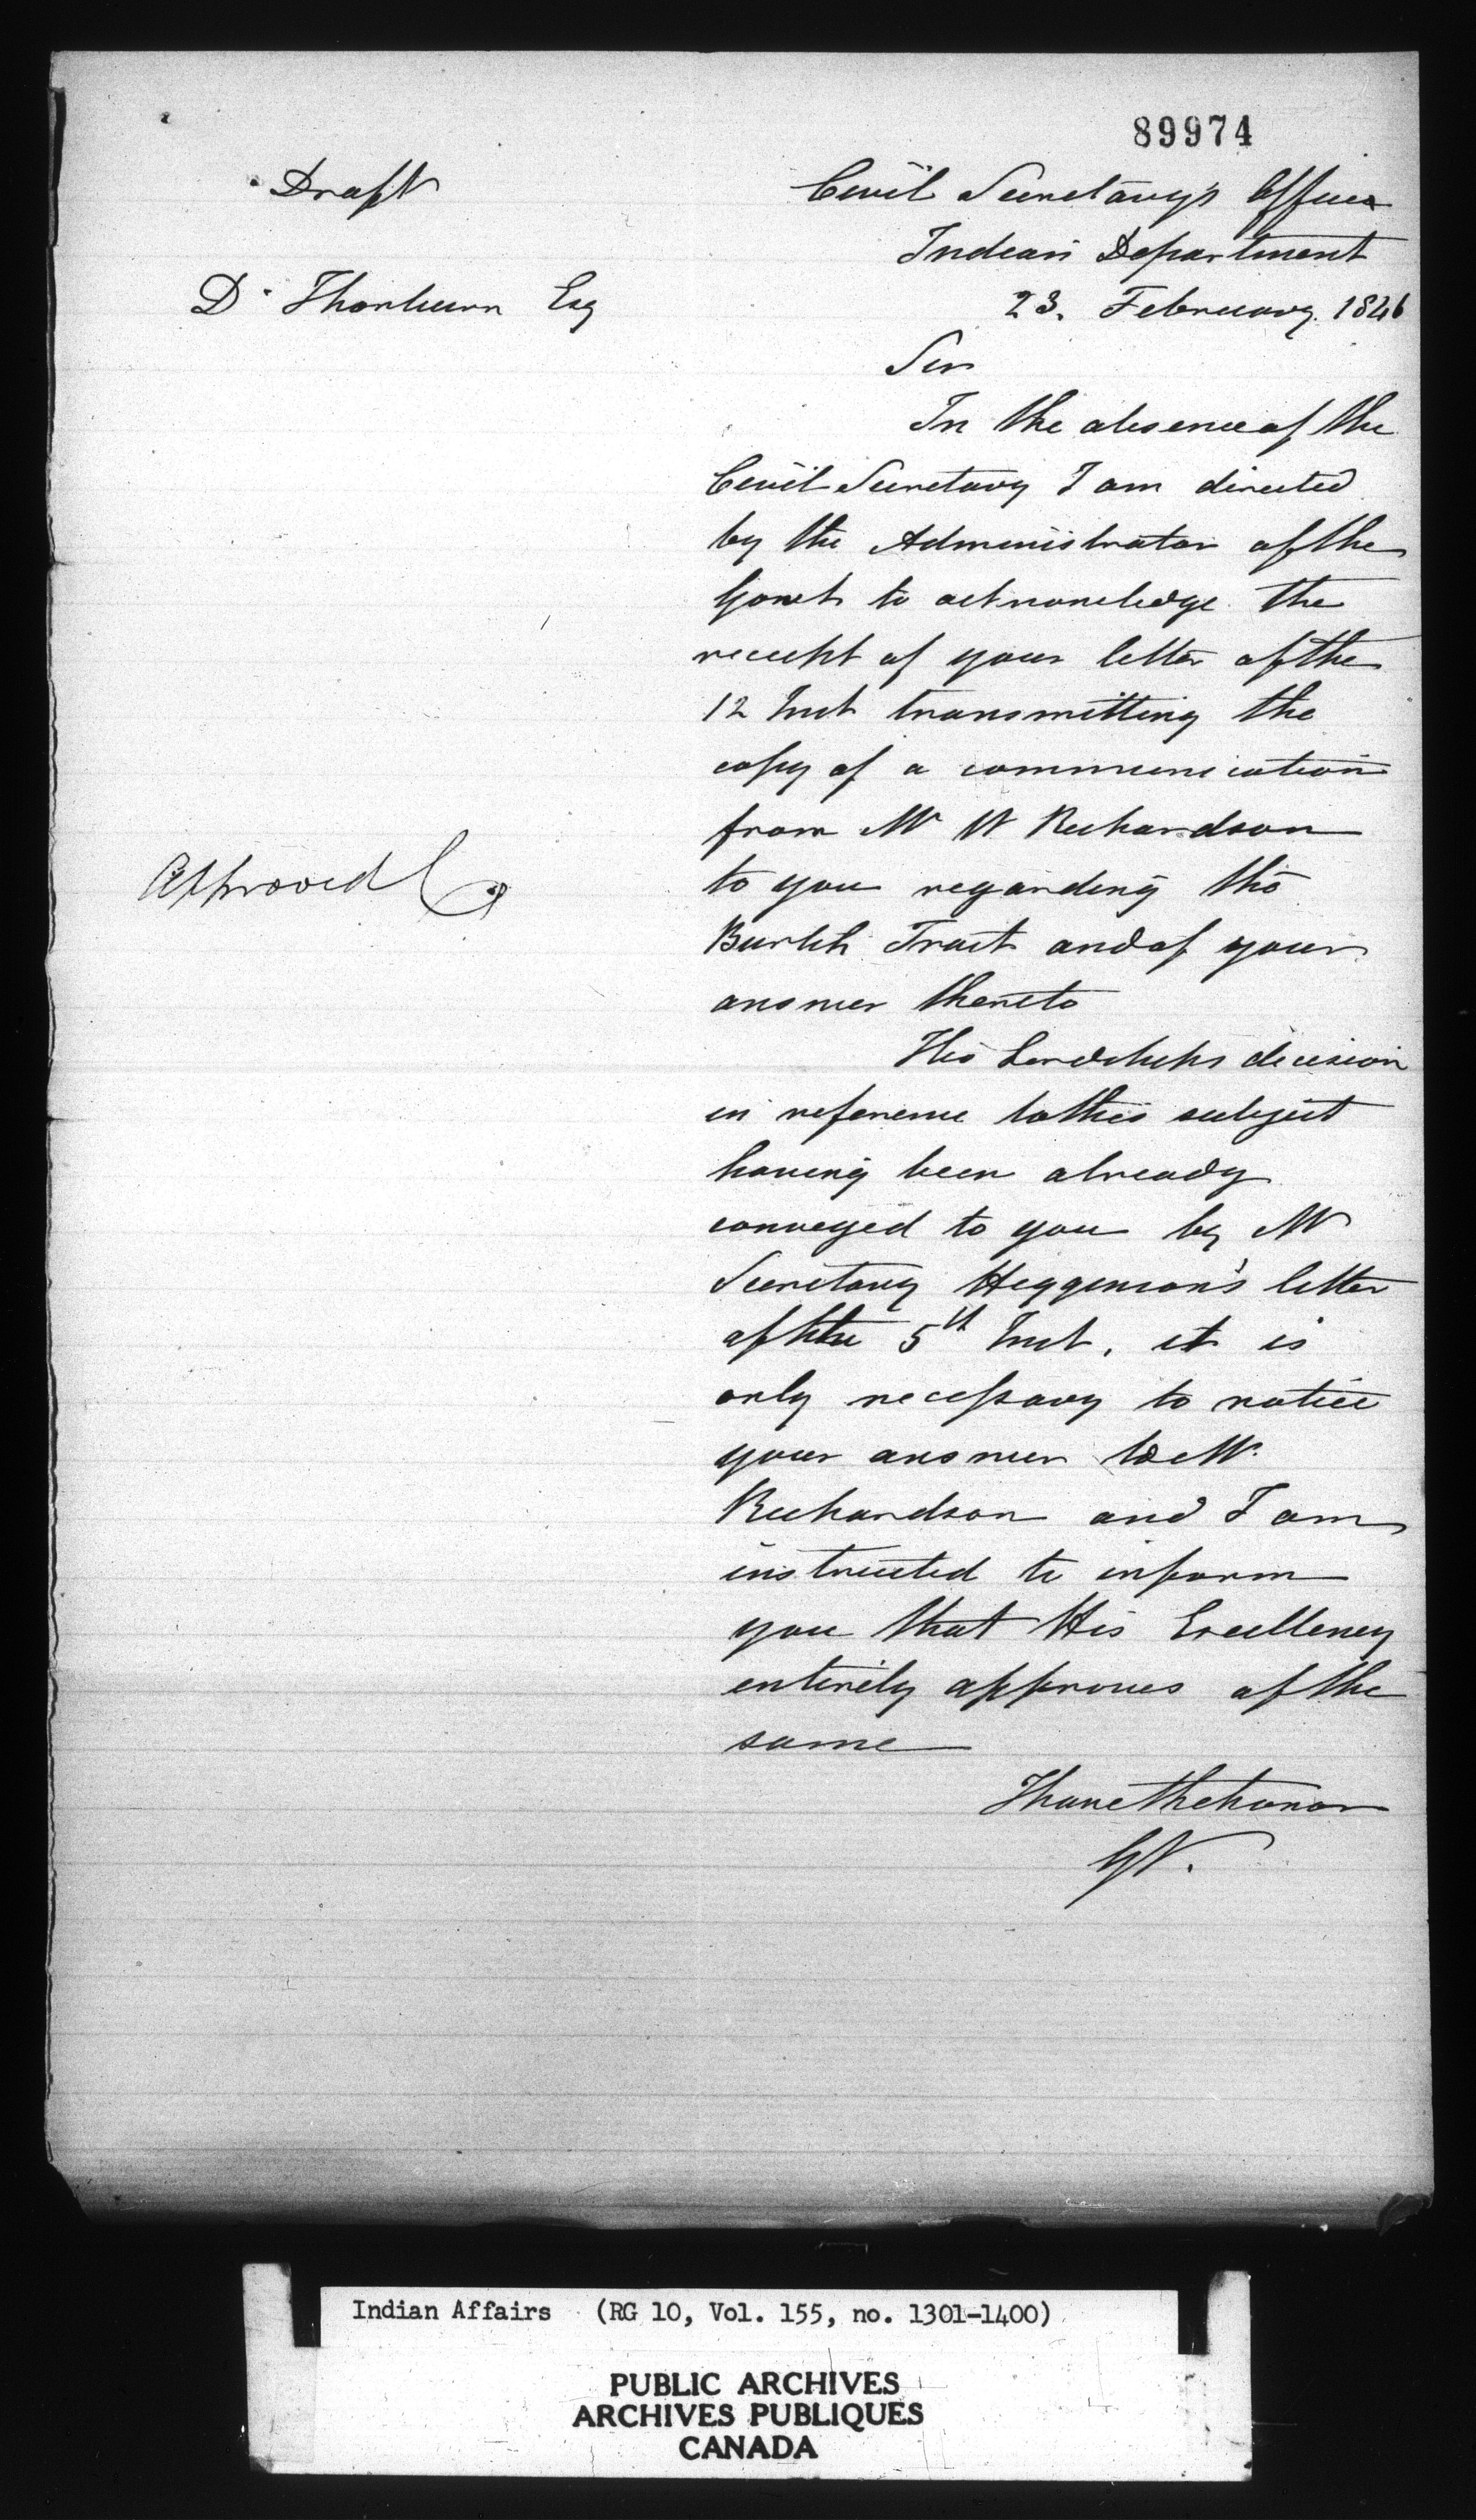 89974
Draft
Civil Secretary's Office
Indian Department
D. Thorburn Esq
23. February. 1846
Sir
In the absence of the
Civil Secretary I am directed
by the Administrator of the
Govt to acknowledge the
receipt of your letter of the
12 Inst transmitting the
copy of a communication
from Mr W Richardson
Approved
to you regarding the
Burtch Tract and of your
answer thereto
His Lordships decision
in reference to this subject
having been already
conveyed to you by Mr
Secretary Higginson's letter
of the 5th Inst, it is
only necessary to notice
your answer to Mr.
Richardson and I am
instructed to inform
you that His Excellency
entirely approves of the
same
I have the honor
GV.
Indian Affairs (RG 10, Vol. 155, no. 1301-1400)
PUBLIC ARCHIVES
ARCHIVES PUBLIQUES
CANADA